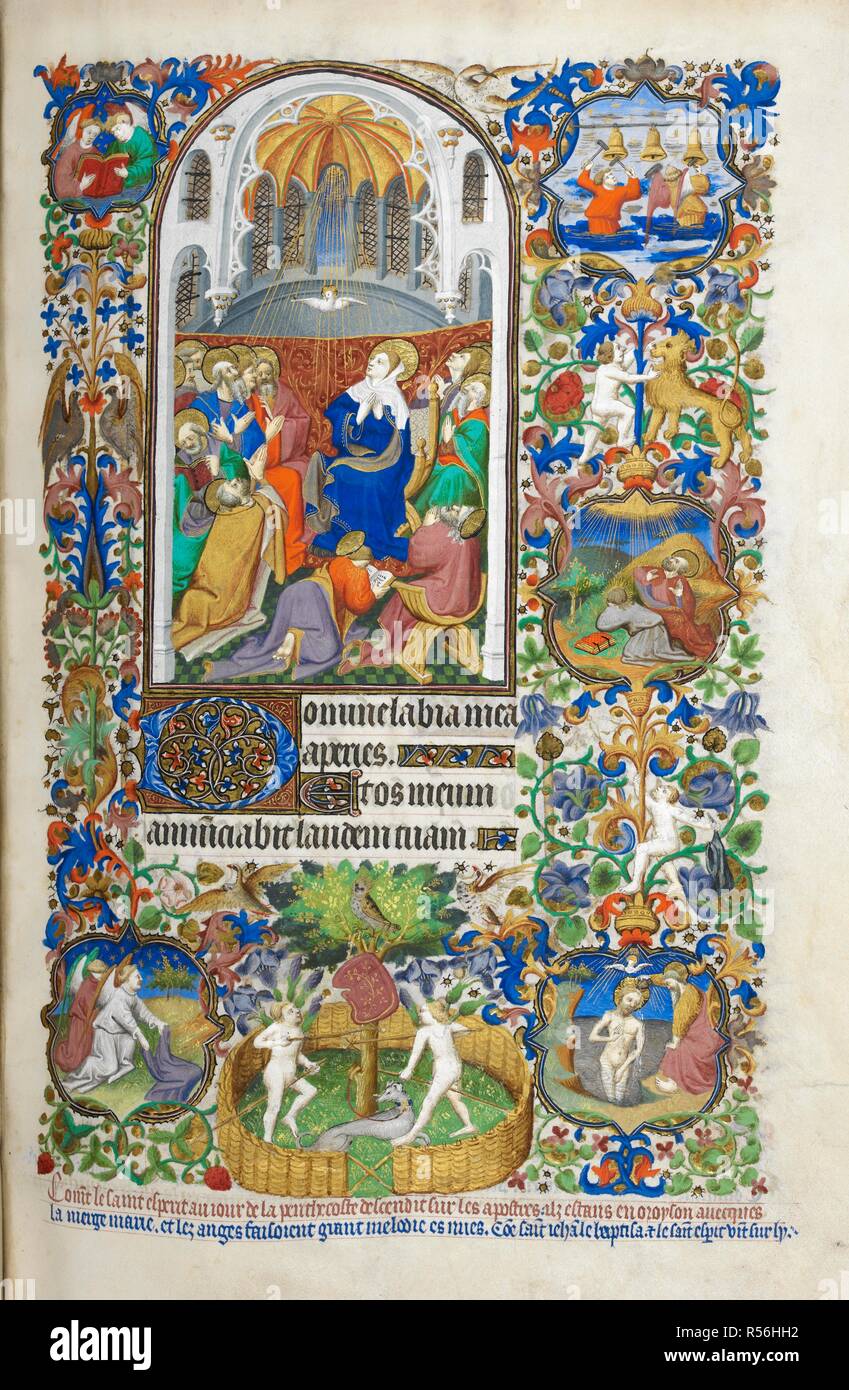 Domine labia mea
aperies.
Et os meum
annūciabit laudem tuam.
Com̄t le saint esperit au iour de la penthecoste descendit sur les apostres. ilz estans en oroyson auecques
la vierge marie. et lez anges faisoient grant melodie es nues. Cōe saīt iehā le baptisa. et le saīt esperit vīt sur ly.
alamy
Image ID: R56HH2
www.alamy.com